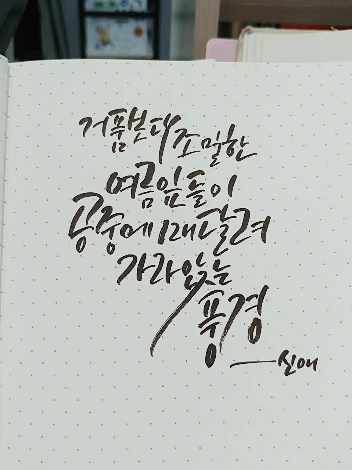 거품보다 조밀한
여름잎들이
공중에 매달려
가라앉는
풍경
신애